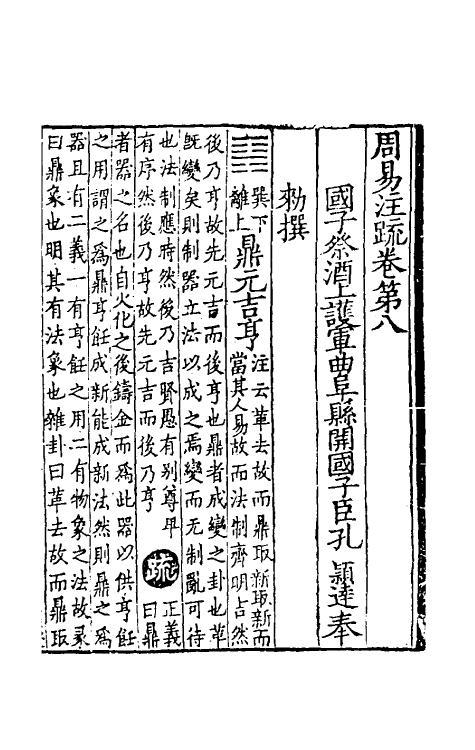 周易注疏卷第八
國子祭酒上護軍曲阜縣開國子臣孔 頴達奉
勑撰
䷱巽下離上鼎元吉亨注云革去故而鼎取新取新而當其人易故而法制齊明吉然
後乃亨故先元吉而後亨也鼎者成變之卦也革
旣變矣則制器立法以成之焉變而无制亂可待
也法制應時然後乃吉賢愚有别尊卑
有序然後乃亨故先元吉而後乃亨 疏 正義曰鼎
者器之名也自火化之後鑄金而爲此器以供亨飪
之用謂之爲鼎亨飪成新能成新法然則鼎之爲
器且有二義一有亨飪之用二有物象之法故彖
曰鼎象也明其有法象也雜卦曰革去故而鼎取